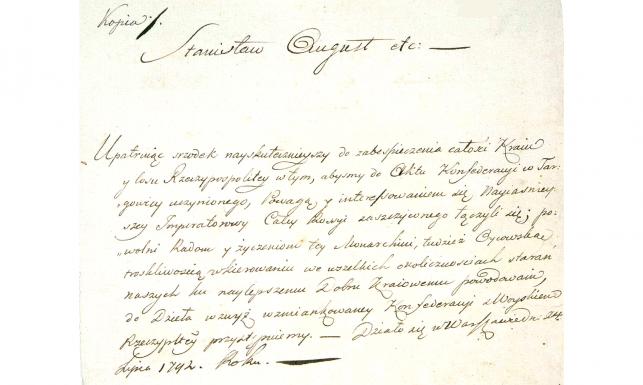 Kopia ·/.
Stanisław August etc: —
Upatruiąc srzodek nayskutecznieyszy do zabespieczenia całości Kraiu
y losu Rzeczypospolitey w tym, abysmy do Aktu Konfederacyi w Tar-
gowicy uczynionego, Powagą y interessowaniem się Nayiasniey-
szey Imperatorowy Całey Rossyi zaszczyconego łączyli się; po-
wolni Radom y życzeniom tey Monarchini, tudzież Oycowską
troskliwością w kierowaniu we wszelkich okolicznościach staran
naszych ku naylepszemu Dobru Kraiowemu powodowani,
do Dzieła wzwyż wzmiankowaney Konfederacyi z Woyskiem
Rzeczyplтеy przystępuiemy. — Działo się w Warszawie dn. 24.
Lipca 1792. Roku. —